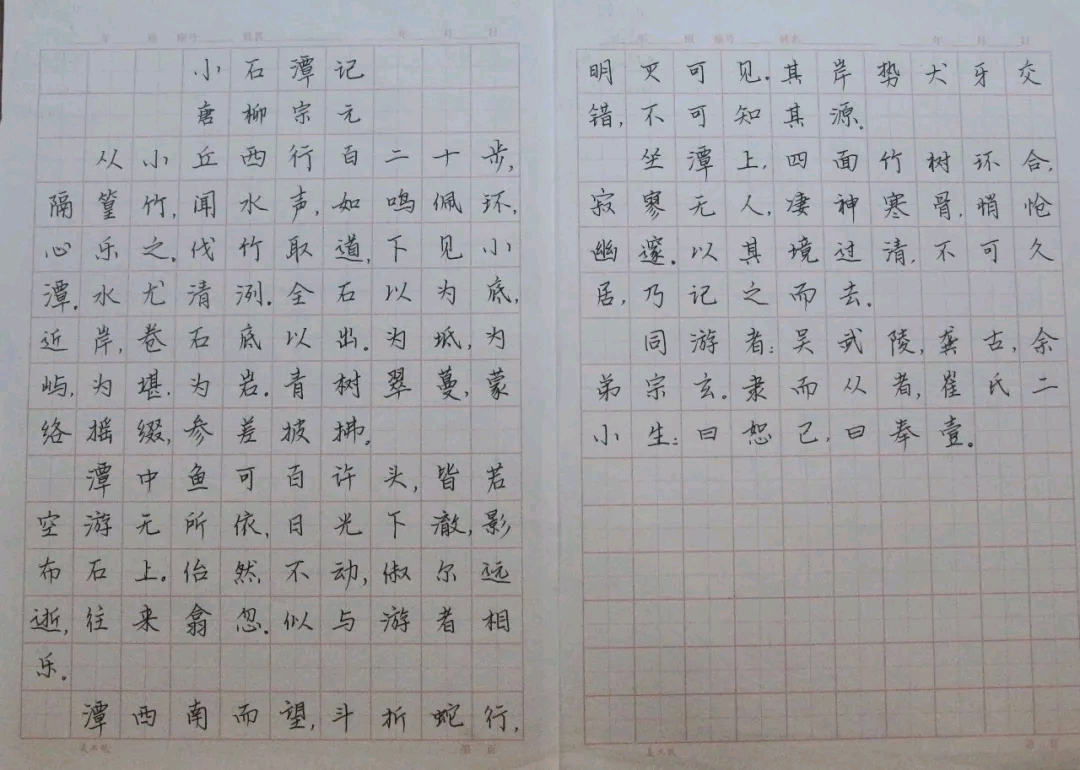 小石潭记
唐柳宗元
从小丘西行百二十步,
隔篁竹,闻水声,如鸣佩环,
心乐之。伐竹取道,下见小
潭。水尤清洌。全石以为底,
近岸,卷石底以出。为坻,为
屿,为堪.为岩。青树翠蔓,蒙
络摇缀,参差披拂。
潭中鱼可百许头,皆若
空游无所依,日光下澈,影
布石上。佁然不动,俶尔远
逝,往来翕忽。似与游者相
乐。
潭西南而望,斗折蛇行,
明灭可见。其岸势犬牙交
错,不可知其源。
坐潭上,四面竹树环合,
寂寥无人,凄神寒骨,悄怆
幽邃。以其境过清,不可久
居,乃记之而去。
同游者:吴武陵,龚古,余
弟宗玄。隶而从者,崔氏二
小生:曰恕己,曰奉壹。